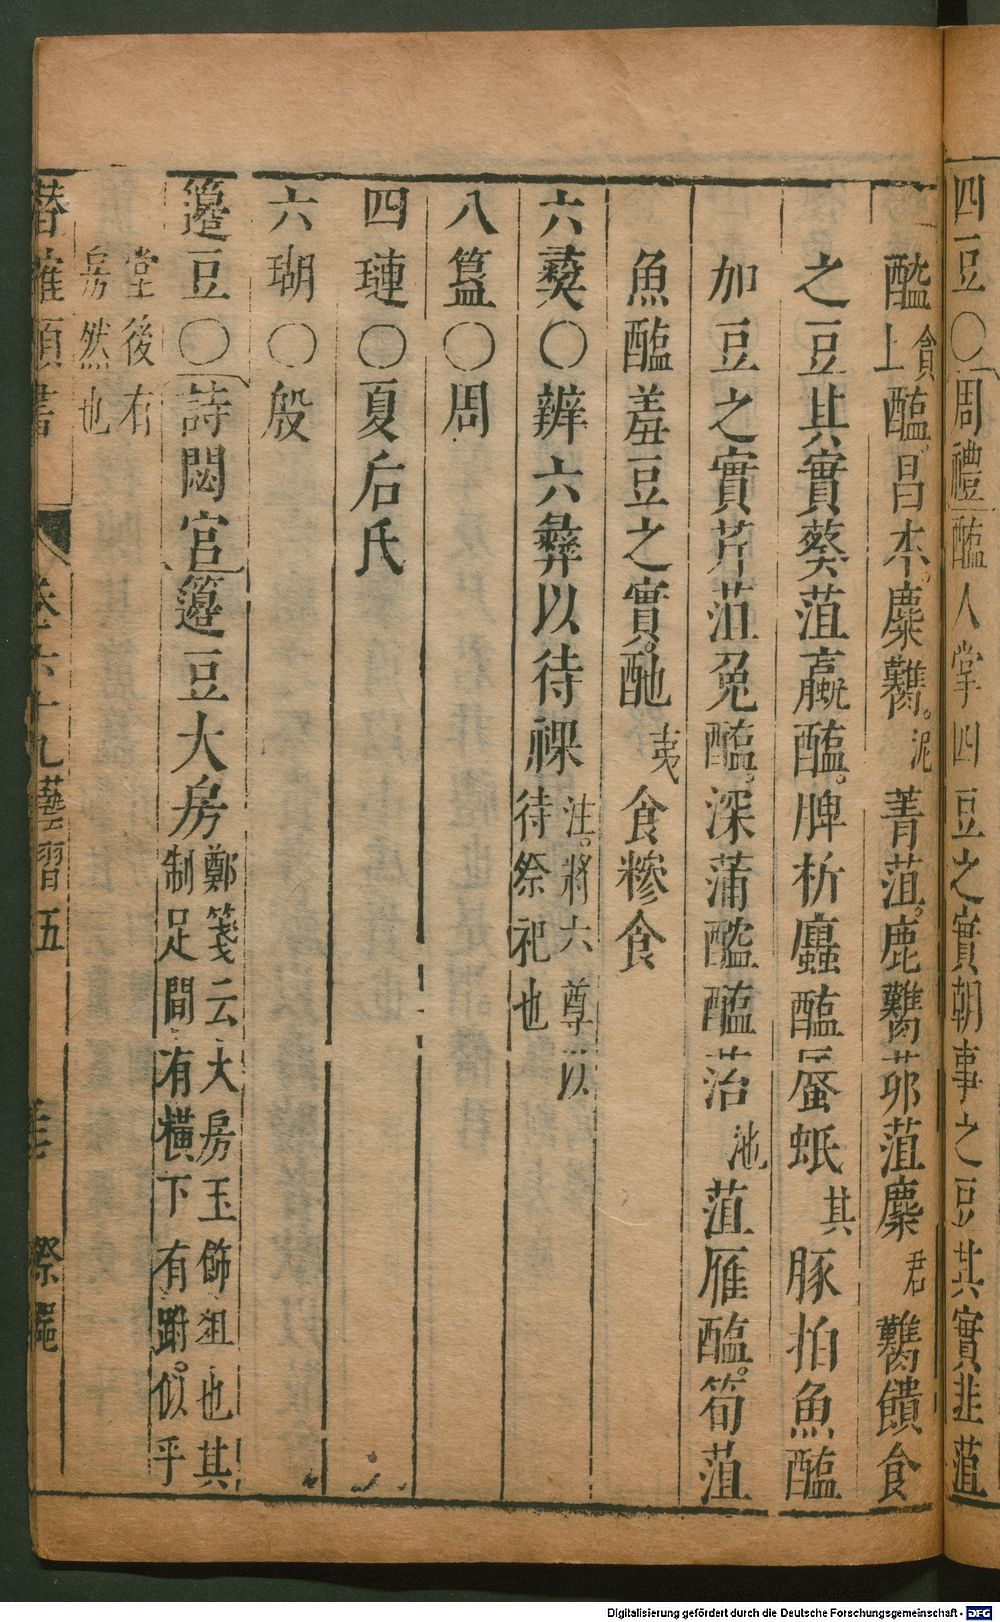 四豆〇周禮醢人掌四豆之實朝事之豆其實韭菹
醓上貪醢昌本麋臡泥菁菹鹿臡茆菹麇君臡饋食
之豆其實葵菹蠃醢脾析蠯醢蜃蚳其豚拍魚醢
加豆之實芹菹兔醢深蒲醓醢菭池菹雁醢筍菹
魚醢羞豆之實酏夷食糝食
六彝〇辨六彝以待祼注將六尊以
待祭祀也
八簋〇周
四璉〇夏后氏
六瑚〇殷
籩豆〇詩閟宮籩豆大房鄭箋云大房玉飾俎也其
制足間有橫下有跗似乎
堂後有
房然也
潛確類書 卷六十九藝習五 祭器
Digitalisierung gefördert durch die Deutsche Forschungsgemeinschaft - DFG